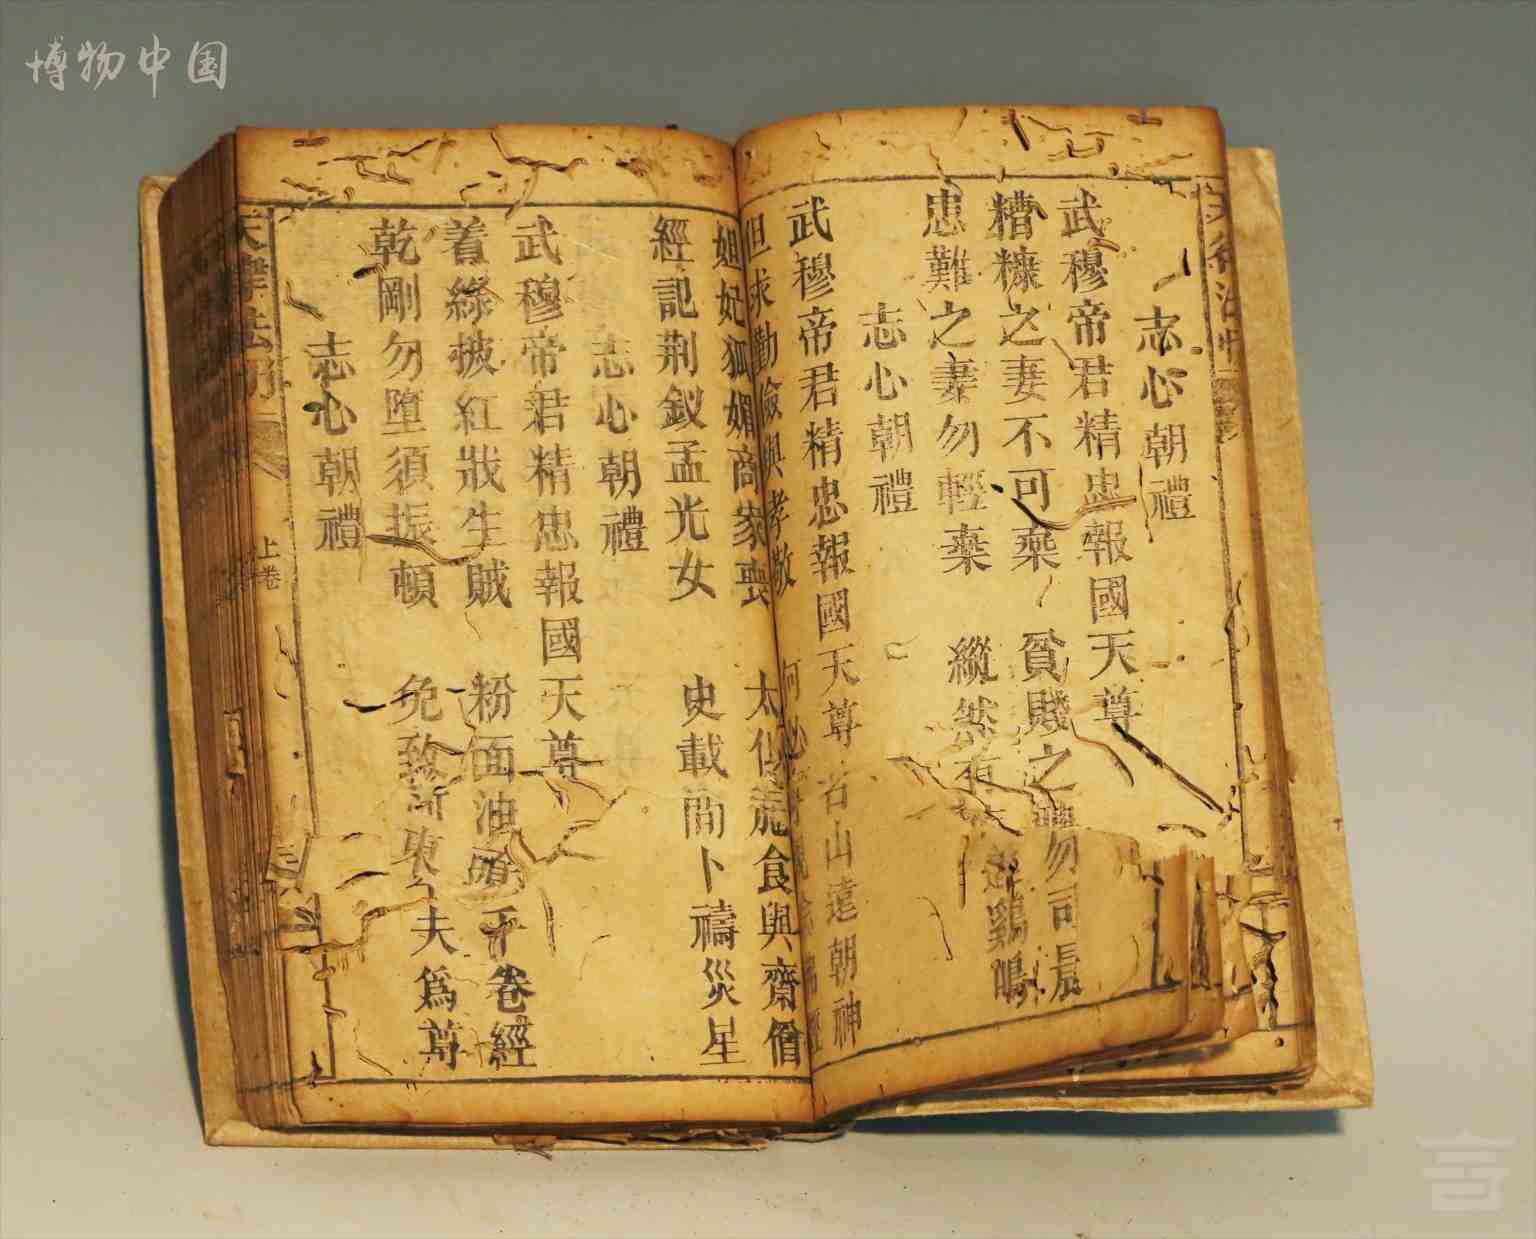 博物中国
志心朝禮
武穆帝君精忠報國天尊
糟糠之妻不可棄 貧賤之 勿司晨
患難之妻勿輕棄 縱然有 鷄鳴
志心朝禮
武穆帝君精忠報國天尊 名山遠朝神
但求勤儉與孝敬 何必 經
妲妃狐媚商家喪 太似 食與齋僧
經記荆釵孟光女 史載 卜禱災星
志心朝禮
武穆帝君精忠報國天尊
着綠披紅戕生賊 粉面油 千卷經
乾剛勿墮須振頓 免致河東 夫爲尊
志心朝禮
上卷